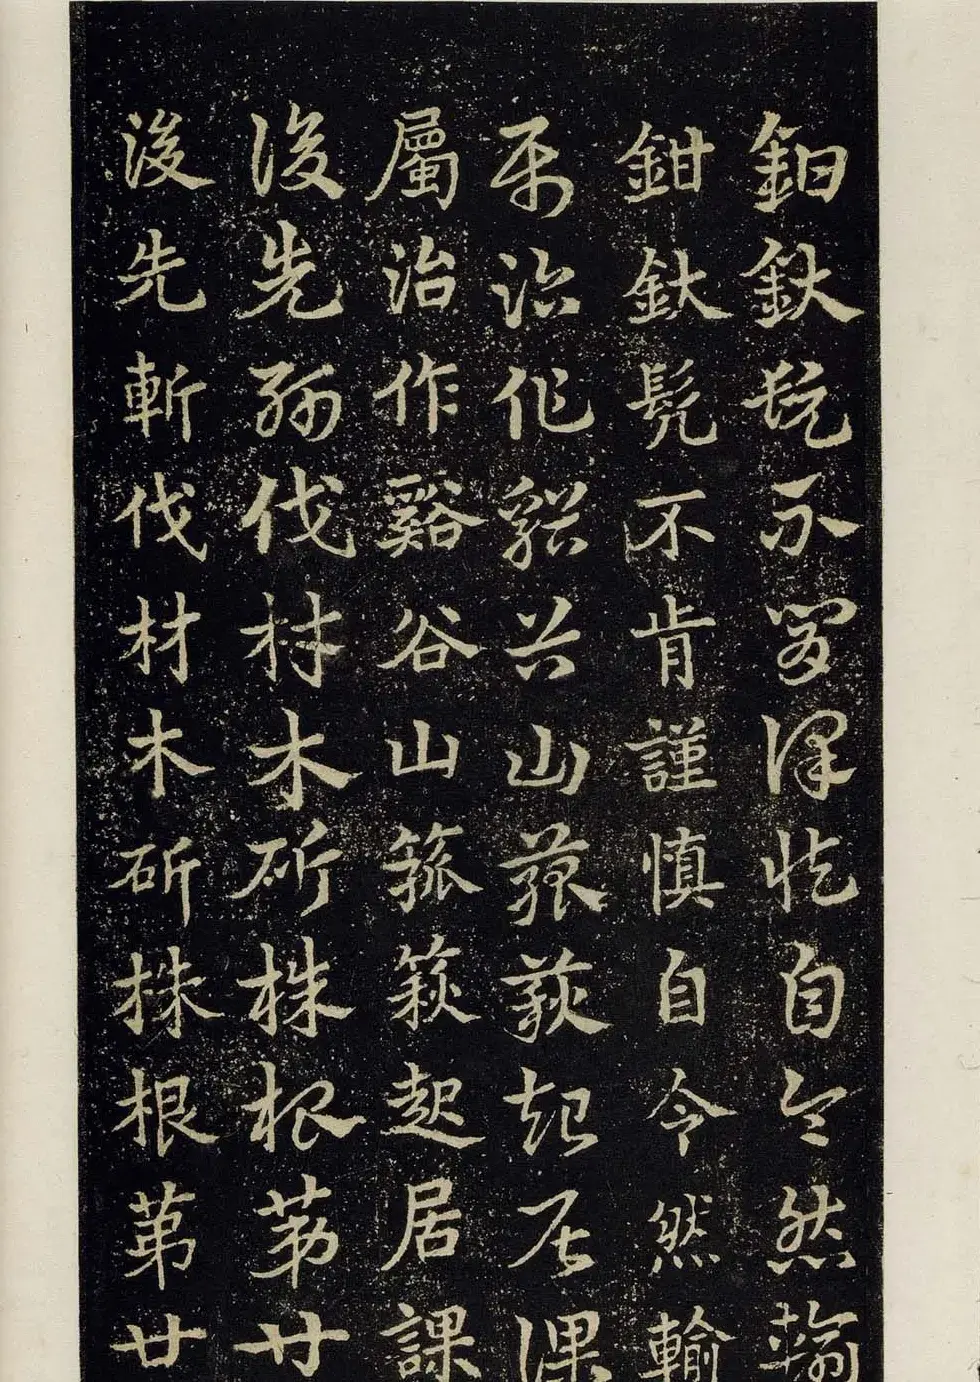 鉗釱髡不肯謹慎自令然輸
鉗釱髡不肯謹慎自令然輸
屬治作谿谷山箛篍起居課
屬治作谿谷山箛篍起居課
後先斬伐材木斫株根第廿
後先斬伐材木斫株根第廿